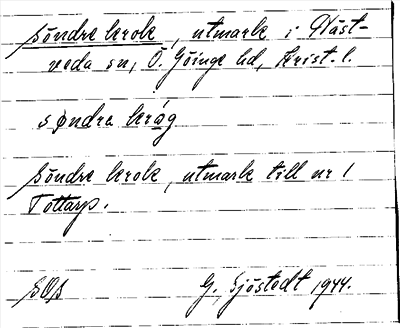 söndre krok, utmark i Näst-
veda sn, Ö. Göinge hd, Krist. l.
søndra krǻg
söndre krok, utmark till nr 1
Tottarp.
G. Sjöstedt 1944.